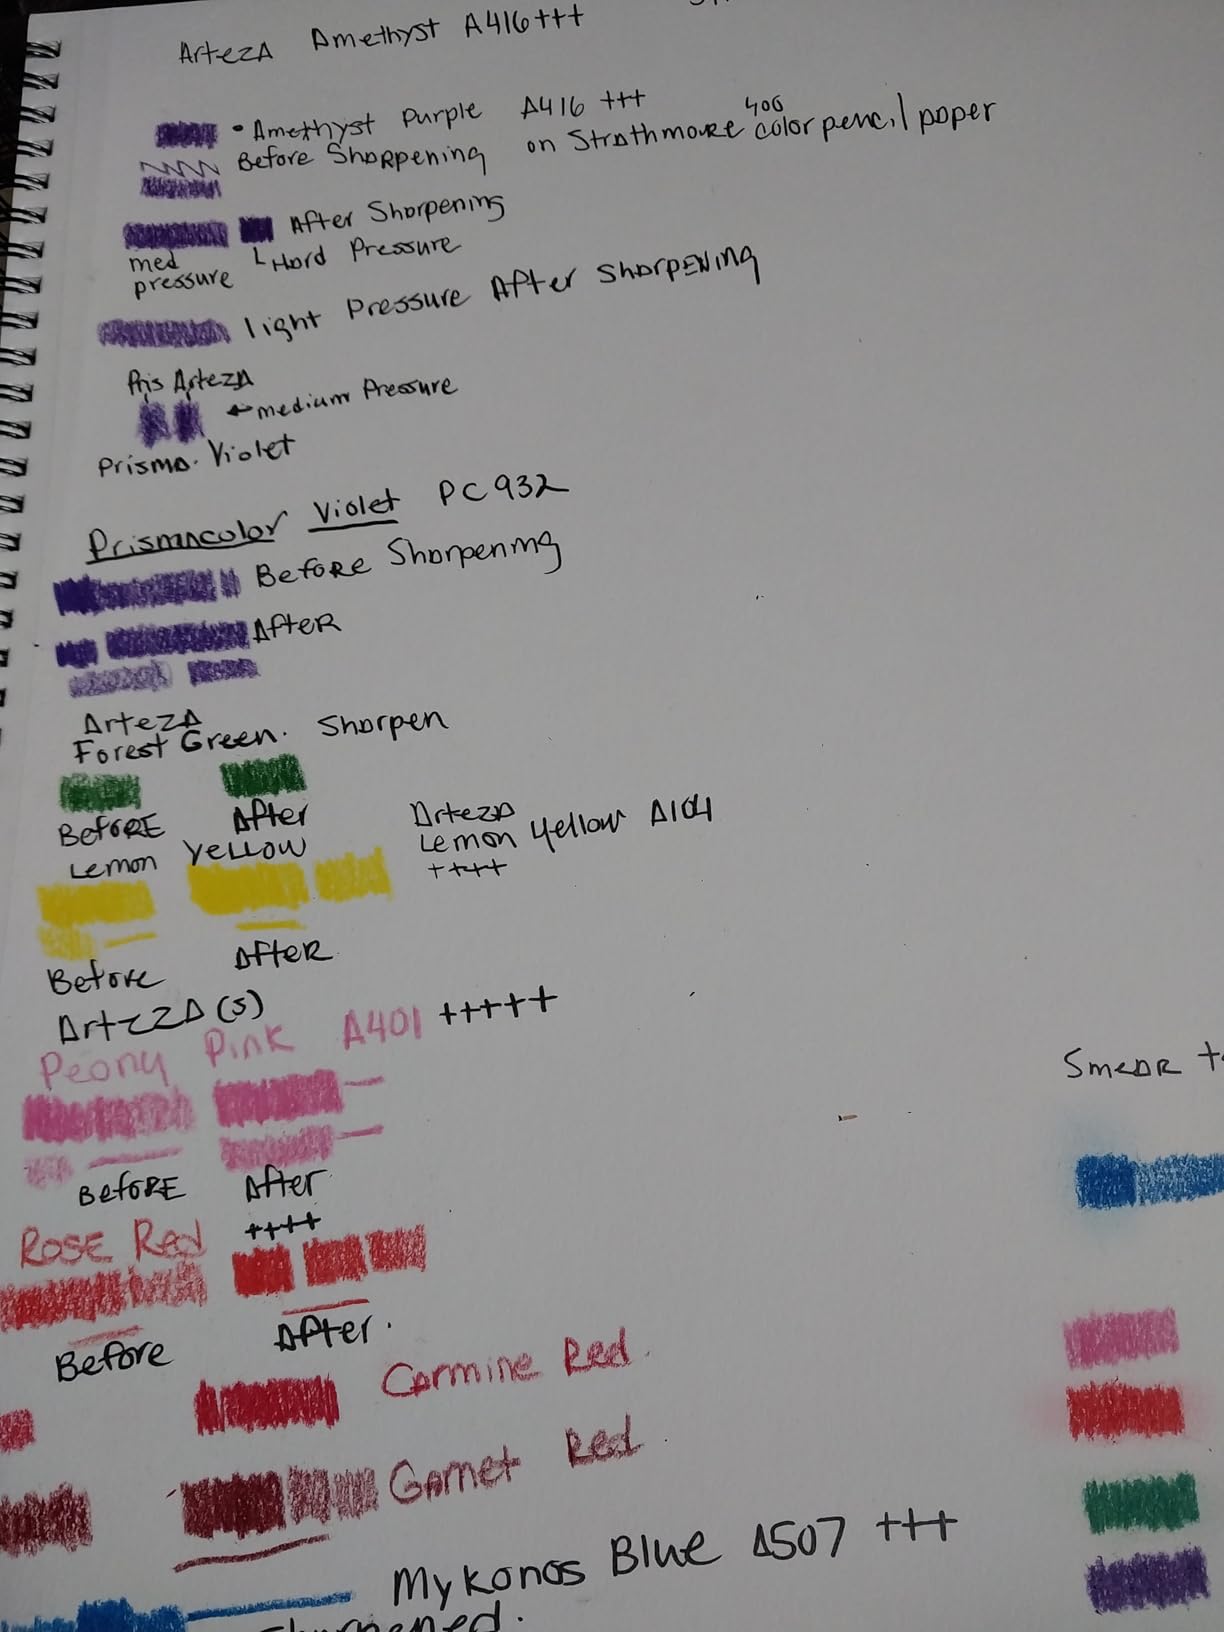 ArtezA Amethyst A416+++
• Amethyst Purple A416 +++
Before Sharpening on Strathmore 400 color pencil paper
After Sharpening
med pressure
Hard Pressure
light Pressure After sharpening
Pris ArtezA
← medium Pressure
Prisma. Violet
Prismacolor Violet PC932
Before Sharpening
After
ArtezA
Forest Green. Sharpen
Before After
Lemon Yellow
Arteza
Lemon Yellow A104
++++
Before After
ArtezA (s)
Peony Pink A401 +++++
Before After
Rose Red ++++
Before After.
Carmine Red.
Garnet Red.
Mykonos Blue A507 +++
Smear